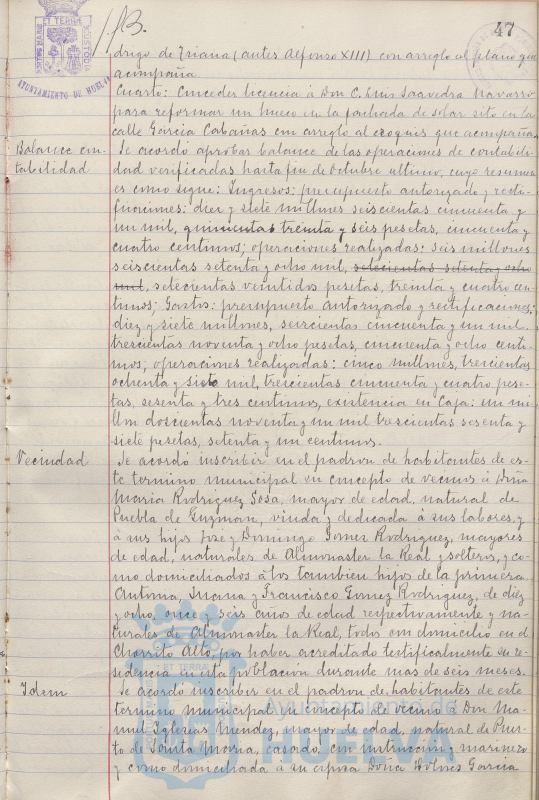 47
AYUNTAMIENTO DE HUELVA
drigo de Triana (antes Alfonso XIII) con arreglo al plano que
acompaña.
Cuarto: Conceder licencia á Don C. Luis Saavedra Navarro
para reformar un hueco en la fachada de solar sito en la
calle García Cabañas con arreglo al croquis que acompaña.
Balance con-
tabilidad
Se acordó aprobar balance de las operaciones de contabili-
dad verificadas hasta fin de Octubre ultimo, cuyo resumen
es como sigue: Ingresos: presupuesto autorizado y recti-
ficaciones: diez y siete millones seiscientas cincuenta y
un mil, quinientas treinta y seis pesetas, cincuenta y
cuatro centimos; operaciones realizadas: seis millones
seiscientas setenta y ocho mil, setecientas setenta y ocho
mil, setecientas veintidos pesetas, treinta y cuatro cen-
timos; Gastos: presupuesto autorizado y rectificaciones:
diez y siete millones, seiscientas cincuenta y un mil
trescientas noventa y ocho pesetas, cincuenta y ocho centi-
mos; operaciones realizadas: cinco millones, trescientas
ochenta y siete mil, trescientas cincuenta y cuatro pese-
tas, sesenta y tres centimos, existencia en Caja: un mi-
llon doscientas noventa y un mil trescientas sesenta y
siete pesetas, setenta y un centimos.
Vecindad
Se acordó inscribir en el padron de habitantes de es-
te termino municipal en concepto de vecinos á Doña
Maria Rodriguez Sosa, mayor de edad, natural de
Puebla de Guzman, viuda y dedicada á sus labores, y
á sus hijos Jose y Domingo Gomez Rodriguez, mayores
de edad, naturales de Almonaster la Real y solteros, y co-
mo domiciliados á los tambien hijos de la primera
Antonia, Juana y Francisco Gomez Rodriguez, de diez
y ocho, once y seis años de edad respectivamente y na-
turales de Almonaster la Real, todos con domicilio en el
Chorrito Alto, por haber acreditado testificalmente su re-
sidencia en esta población durante mas de seis meses.
Idem
Se acordó inscribir en el padron de habitantes de este
termino municipal en concepto de vecino á Don Ma-
nuel Iglesias Mendez, mayor de edad, natural de Puer-
to de Santa Maria, casado, con instrucción y marinero
y como domiciliada á su esposa Doña Dolores Garcia
Ayuntamiento de
HUELVA